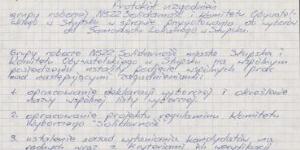 Protokół uzgodnień
grupy roboczej NSZZ Solidarność i Komitetu Obywatel-
skiego w Słupsku w sprawie przygotowania do wyborów
do Samorządu Lokalnego w Słupsku.
Grupy robocze NSZZ Solidarność miasta Słupska i
Komitetu Obywatelskiego w Słupsku na wspólnym
posiedzeniu ustaliły podział wspólnych prac
nad następującymi zagadnieniami:
1. opracowanie deklaracji wyborczej i określenie
nazwy wspólnej listy wyborczej.
2. opracowanie projektu regulaminu Komitetu
Wyborczego Solidarność
3. ustalenie zasad wyłaniania kandydatów na
radnych wraz z kryteriami ich weryfikacji